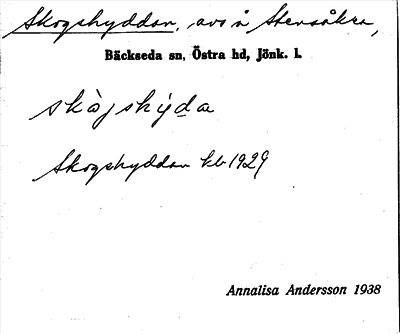 Skogshyddan, avs å Stensåkra,
Bäckseda sn, Östra hd, Jönk. l.
skògshỳda
Skogshyddan kb 1929
Annalisa Andersson 1938